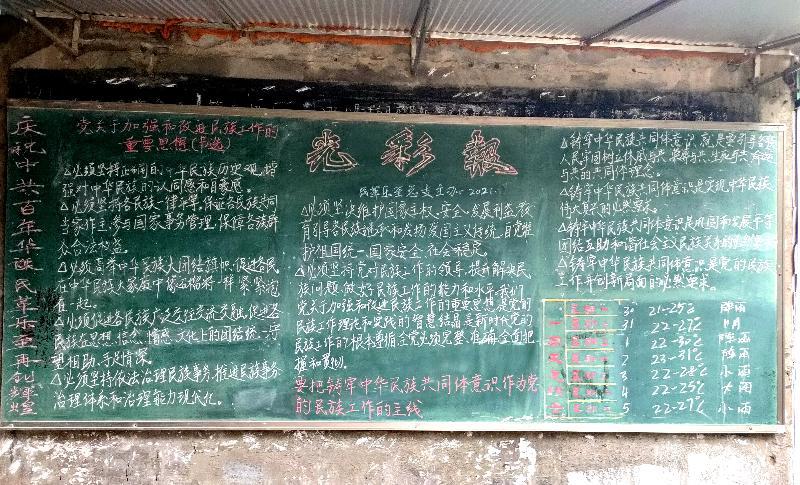 庆祝中共百年华诞民革乐至再创辉煌
党关于加强和改进民族工作的
重要思想(节选)
△必须坚持正确的中华民族历史观,增
强对中华民族的认同感和自豪感。
△必须坚持各民族一律平等,保证各民族共同
当家作主,参与国家事务管理,保障各族群
众合法权益。
△必须高举中华民族大团结旗帜,促进各民族
在中华民族大家庭中像石榴籽一样紧紧抱
在一起。
△必须促进各民族广泛交往交流交融,促进各
民族在理想、信念、情感、文化上的团结统一,守
望相助、手足情深。
△必须坚持依法治理民族事务,推进民族事务
治理体系和治理能力现代化。
光彩报
民革乐至总支主办 2021.
△必须坚决维护国家主权、安全、发展利益,教
育引导各民族继承和发扬爱国主义传统,自觉维
护祖国统一、国家安全、社会稳定。
△必须坚持党对民族工作的领导,提升解决民
族问题、做好民族工作的能力和水平。我们
党关于加强和改进民族工作的重要思想,是党的
民族工作理论和实践的智慧结晶,是新时代党的
民族工作的根本遵循,全党必须完整、准确、全面把
握和贯彻。
要把铸牢中华民族共同体意识作为党
的民族工作的主线
△铸牢中华民族共同体意识,就是要引导各族
人民牢固树立休戚与共、荣辱与共、生死与共、命运
与共的共同体理念。
△铸牢中华民族共同体意识是实现中华民族
伟大复兴的必然要求。
△铸牢中华民族共同体意识是巩固和发展平等
团结互助和谐社会主义民族关系的必然要求
△铸牢中华民族共同体意识是党的民族
工作开创新局面的必然要求。
30 21-25℃ 阵雨
31 22-27℃ 阴
1 22-30℃ 阵雨
2 23-31℃ 阵雨
3 22-28℃ 小雨
4 22-25℃ 大雨
5 22-27℃ 小雨